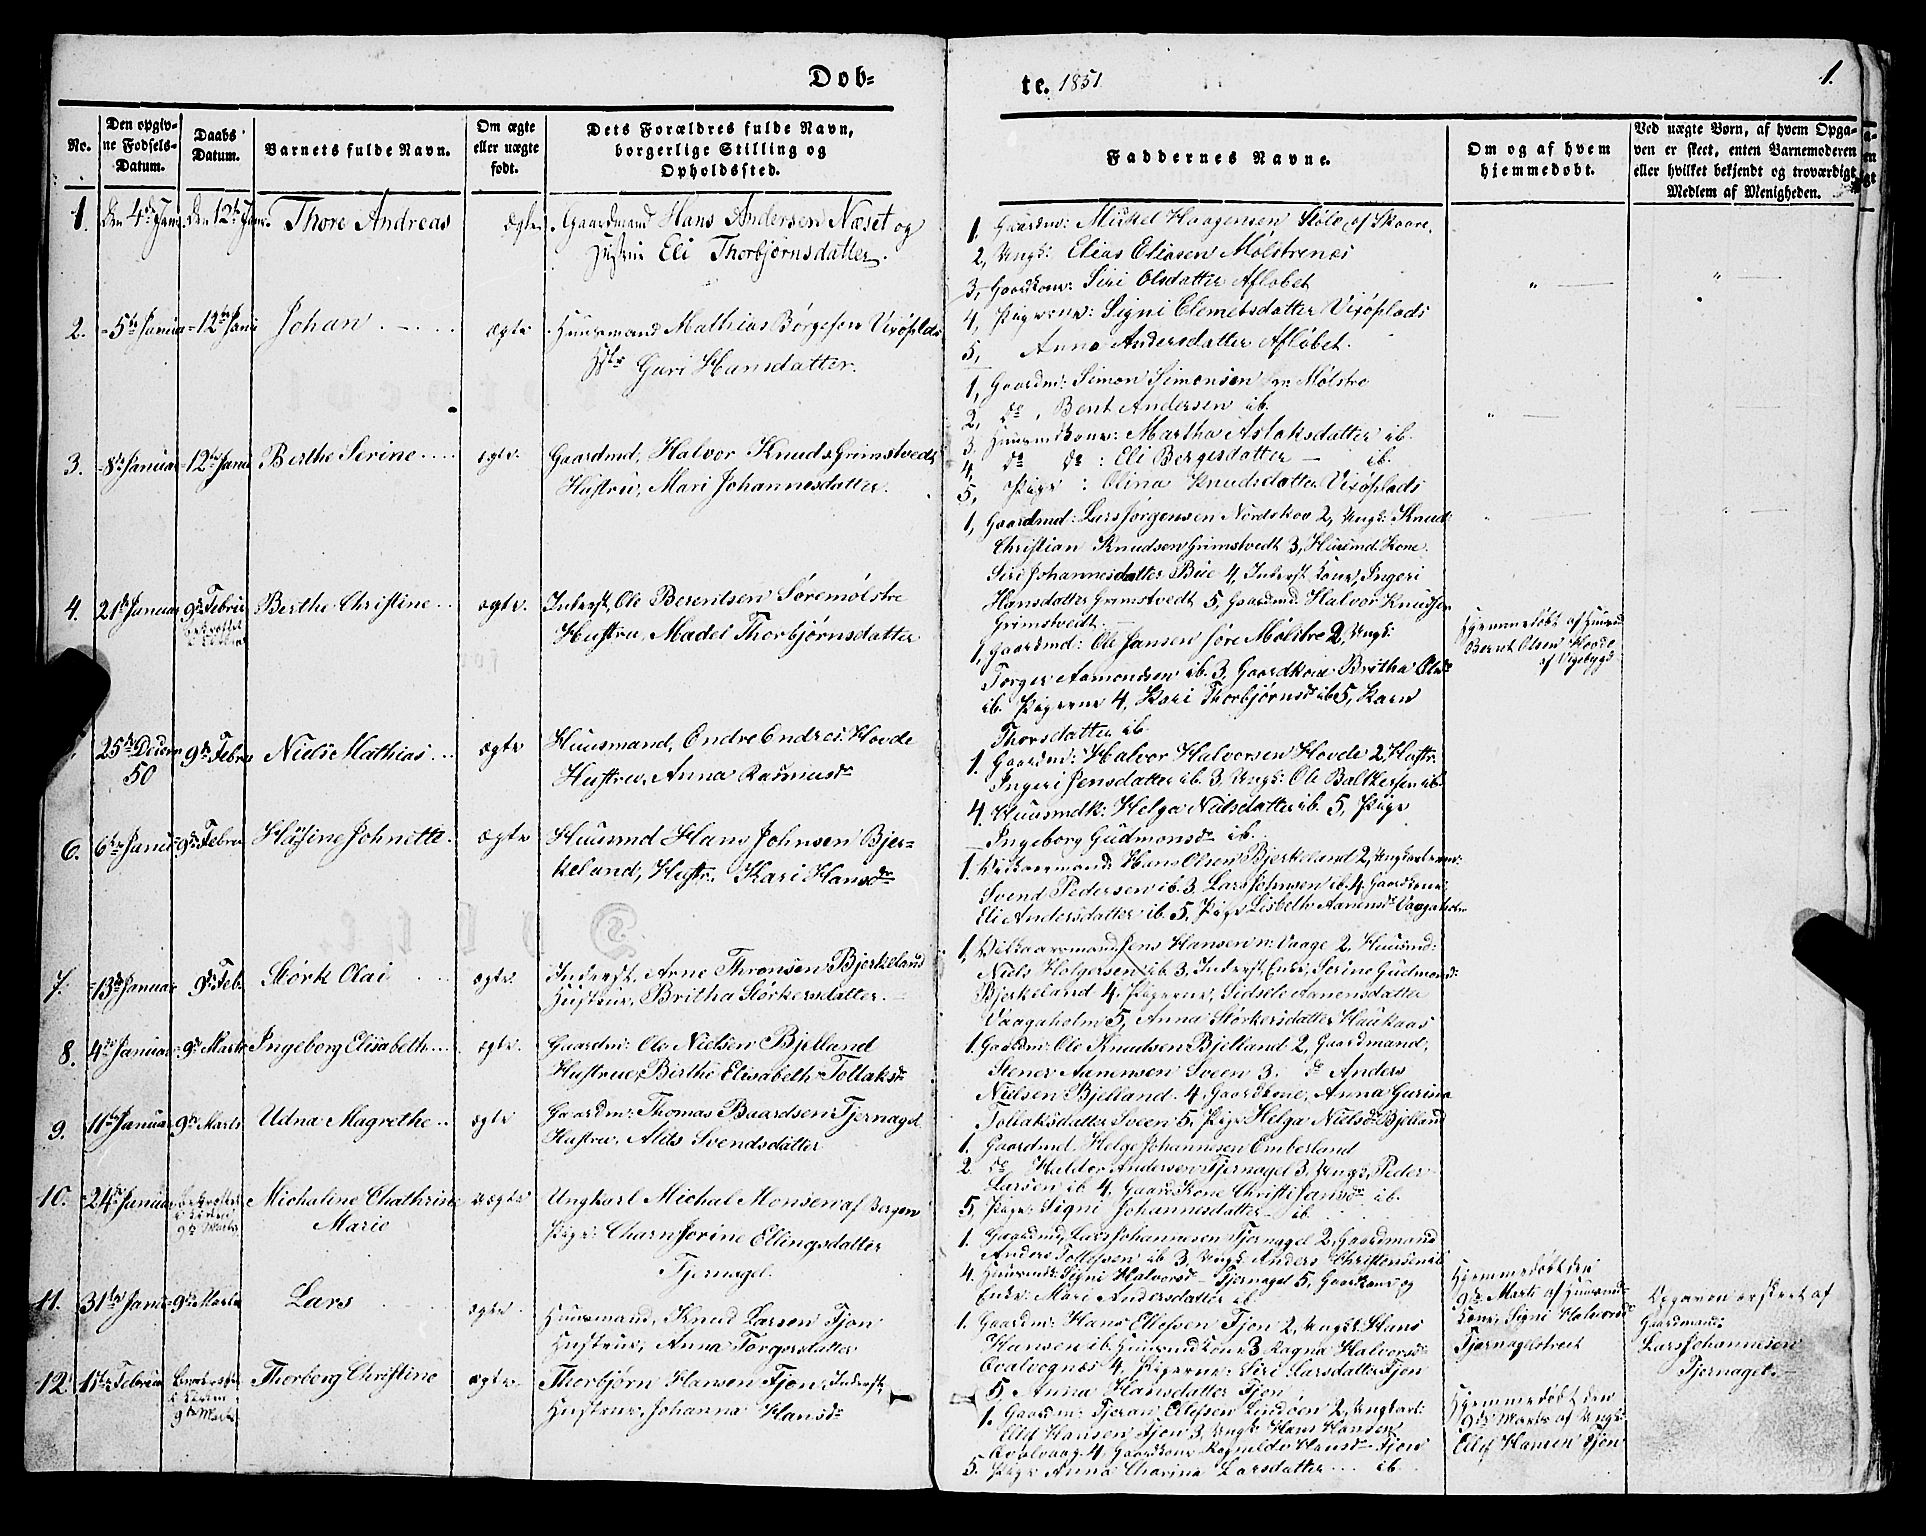 Døb-
te. 1851
1.
No.
Den opgiv-
ne Fødsels-
Datum.
Daabs
Datum.
Barnets fulde Navn.
Om ægte
eller uægte
født.
Dets Forældres fulde Navn,
borgerlige Stilling og
Opholdssted.
Faddernes Navne.
Om og af hvem
hjemmedøbt.
Ved uægte Børn, af hvem Opga-
ven er skeet, enten Barnemoderen
eller hvilket bekjendt og troværdigt
Medlem af Menigheden.
1. den 4de Jan den 12te Jan. Thore Andreas ægte. Gaardmand Hans Andersen Næset og
Hustrue Eli Thorbjørnsdatter.
2. 5te Janua 12te Janu Johan ægte Huusmand Mathias Børgesen Vixøplads
Hstr Guri Hansdatter.
3. 8de Januar 12te Janu Berthe Serine ægte. Gaardmd, Halvor Knuds Grimstvedt
Hustru, Mari Johannesdatter.
4. 21de Januar 9de Febru Berthe Christine ægte. Inderst, Ole Berentsen Søremølstre
Hustru, Madel Thorbjørnsdatter
25de Decem 9de Febru Niels Mathias ægte Huusmand, Endre Endres. Hovde
50 Hustrue, Anna Rasmusdr
6. 6te Janua 9de Febru Johnette ægte Huusmd Hans Johnsen Bjer-
keland, Hustr. Kari Hansdr
7. 13de Januar 9de Feb. Størk Olai ægte. Inderst, Arne Thronsen Bjerkeland
Hustrue, Britha Størkersdatter.
8. 4de Januar 9de Marts Ingeborg Elisabeth ægte. Gaardm: Ole Nielsen Bjelland
Hustrue, Birthe Elisabeth Tollaksdr
9. 11te Januar 9de Marts Udna Magrethe ægte Gaardm: Thomas Baardsen Tjernagel
Hustru, Alits Svendsdatter
10. 24de Januar 9de Marts Michaline Chathrine uægte Ungkarl Michal Monsen af Bergen
Marie Pige: Charn Jorine Ellingsdatter
Tjernagel.
11. 31te Janu 9de Marts Lars ægte. Huusmand, Knud Larsen Tjon
Hustrue, Anna Torgersdatter
12. 11te Februar 9de Marts Thorberg Christine ægte. Thorbjørn Hansen Tjon, Inderst,
Hustrue, Johanna Hansdr
1. Gaardm: Mikkel Haagensen Støle, af Skaare.
2, Ungk: Elias Eliasen Mølstrenes
3, Gaardkone: Siri Olsdatter Afløbet
4, Pigerne: Signi Clemetsdatter Vixøplads
5, Anna Andersdatter Afløbet.
1, Gaardm: Simon Simonsen Mølstre
2, do, Bent Andersen ib.
3, Huusmdkone: Martha Aslaksdatter ib.
4, do do: Eli Bergersdatter — ib.
5, Pige: Olina Knudsdatter Vixøplads
1, Gaardmd: Lars Jørgensen Nordskov 2, Ungk: Knud
Christian Knudsen Grimstvedt 3, Huusmd. Kone.
Siri Johannesdatter Bue 4, Inderst Kone, Ingeri
Hansdatter Grimstvedt 5, Gaardmd: Halvor Knudsen
Grimstvedt.
1, Gaardmd: Ole Jansen Søre Mølstre 2, Ungk:
Torger Aamondsen ib. 3, Gaardkone Britha Olsdr
ib. Pigerne 4, Kari Thorbjørnsdr ib 5, Karn
Thorsdatter ib
1. Gaardm: Halvor Halvorsen Hovde 2, Hustr:
Ingeri Jensdatter ib. 3, Ungk: Ole Baltsersen ib.
4. Huusmdk: Helga Nielsdatter ib. 5, Pige
Ingeborg Gudmonsdr ib.
1. Vilkaarsmand Hans Olsen Bjerkeland 2, Ungkarlene:
Svend Pedersen ib 3. Lars Johnsen ib. 4. Gaardkone
Eli Andersdatter ib. 5, Pige Lisbeth Aanensdr Vaagaholm
1, Vilkaarsmand Jens Hansen n: Vaage 2, Huusmd:
Niels Holgersen ib 3. Inderst Enke, Serine Gudmonsdr
Bjerkeland 4. Pigerne, Sidsele Aanensdatter
Vaagaholm 5, Anna Størkersdatter Haukaas
1. Gaardm: Ole Knudsen Bjelland 2, Gaardmand,
Stener Aanensen Sveen 3. do Anders
Nielsen Bjelland. 4. Gaardkone, Anna Gurina
Tollaksdatter Sveen 5. Pige Helga Nielsdr Bjelland
1. Gaardmd. Helge Johannesen Emberland
2 do Haldor Andersen Tjernagel 3, Ungk. Peder
Larsen ib 4. Gaards Kone Christi Jansdr ib.
5, Pige: Signi Johannesdatter — ib.
1. Gaardmd, Lars Johannesen Tjernagel 2, Gaardmand
Anders Tollefsen ib 3. Ungk. Anders Christensen ib
4. Huusmdk: Signi Halvorsd — Tjernagel 5, Gaardkone og
Enke: Mari Andersdatter ib
1. Gaardm: Hans Ellefsen Tjon 2, Ungk. Hans
Hansen ib. Huusmdkone 3 Ragna Halvorsdr
4, Pigerne: Siri Larsdatter Tjon
5, Anna Hansdatter Tjon
1. Gaardm: Tjeran Eilefsen Lindøen 2, Ungkarl:
Elid Hansen Tjon 3, Ungk: Hans Hansen
Qvalvaag 4, Gaardkone Ragnilde Hansdr — Tjon
5. Pige Anna Charina Larsdatter ib.
Hjemmedøbt af Huusmd
Bernt Olsen Hovde
af Vigebygd
Hjemmedøbt den
9de Marts af Huusmd-
kone, Signi Halvorsdr
Tjernagelstreit
Opgaven er skeet af
Gaardmand:
Lars Johannesen
Tjernagel.
Hjemmedøbt den
9de Marts af Ungk:
Eilef Hansen Tjon